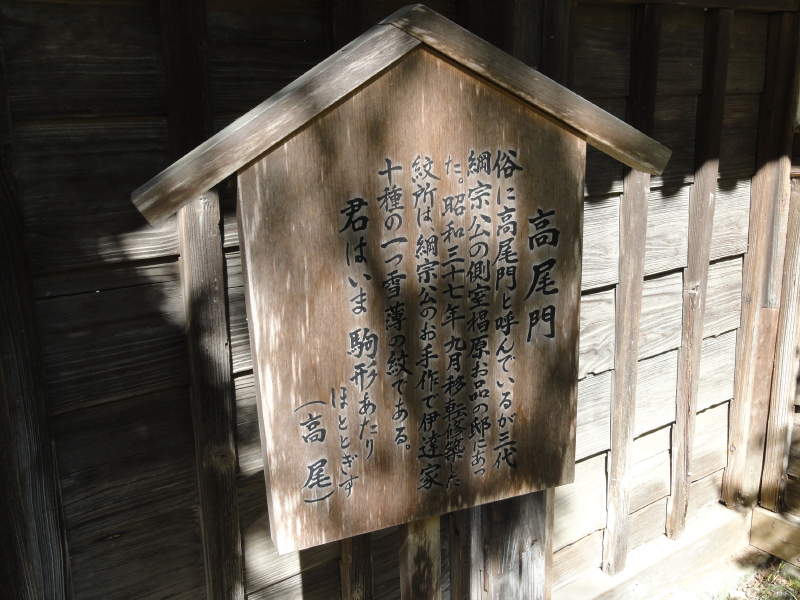 高尾門
俗に高尾門と呼んでいるが三代
綱宗公の側室椙原お品の邸にあっ
た。昭和三十七年九月移転修築した
紋所は、綱宗公のお手作で伊達家
十種の一つ雪薄の紋である。
君はいま駒形あたり
ほととぎす
(高尾)